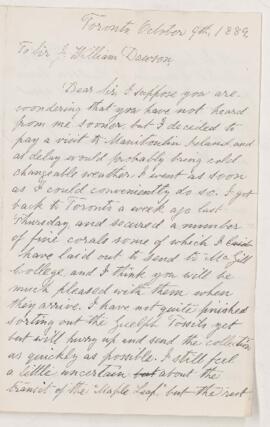 Toronto October 9th, 1889
To Sir J. William Dawson,
Dear Sir, I suppose you are
wondering that you have not heard
from me sooner but I decided to
pay a visit to Manitoulin Island and
as delay would probably bring cold
changeable weather I went as soon
as I could conveniently do so. I got
back to Toronto a week ago last
Thursday and secured a number
of fine corals some of which I
have laid out to send to Mc Gill
College and I think you will be
much pleased with them when
they arrive. I have not quite finished
sorting out the Guelph Fossils yet
but will hurry up and send the collection
as quickly as possible. I still feel
a little uncertain but about the
transit of the "Maple Leaf" but the rest